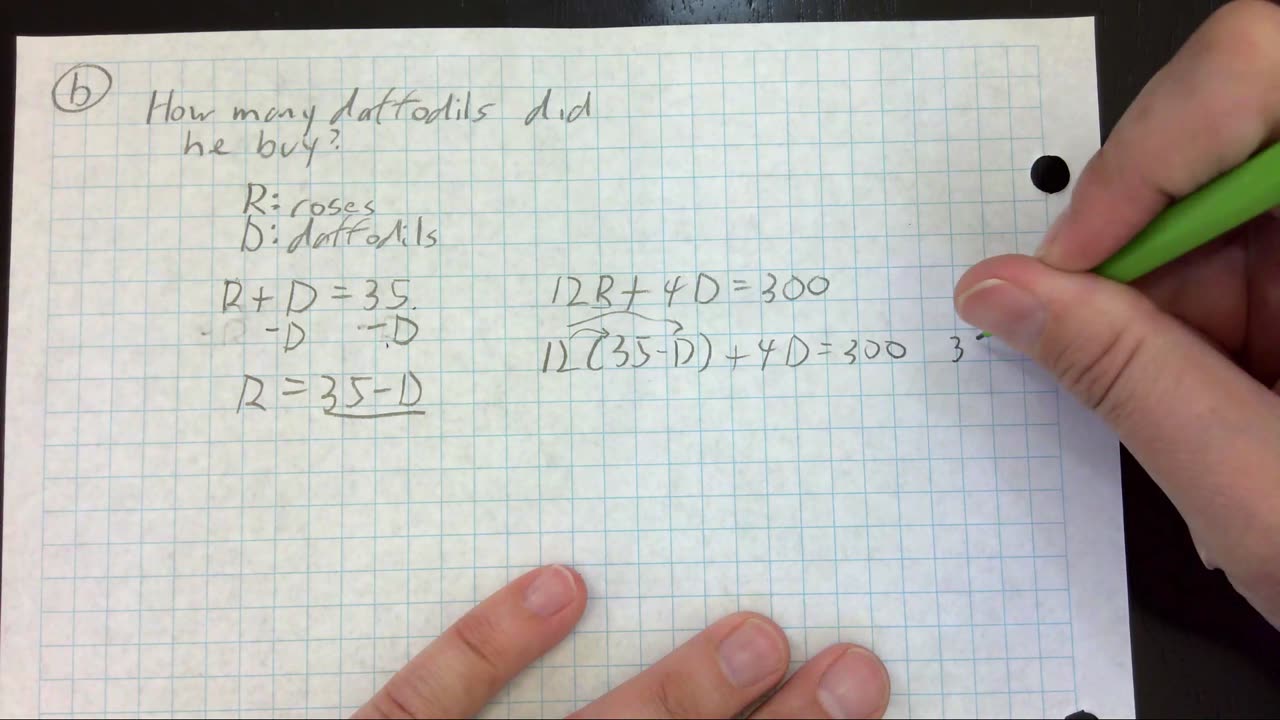 b
How many daffodils did
he buy?
R: roses
D: daffodils
R + D = 35
-D -D
R = 35-D
12R + 4D = 300
12(35-D) + 4D = 300 3